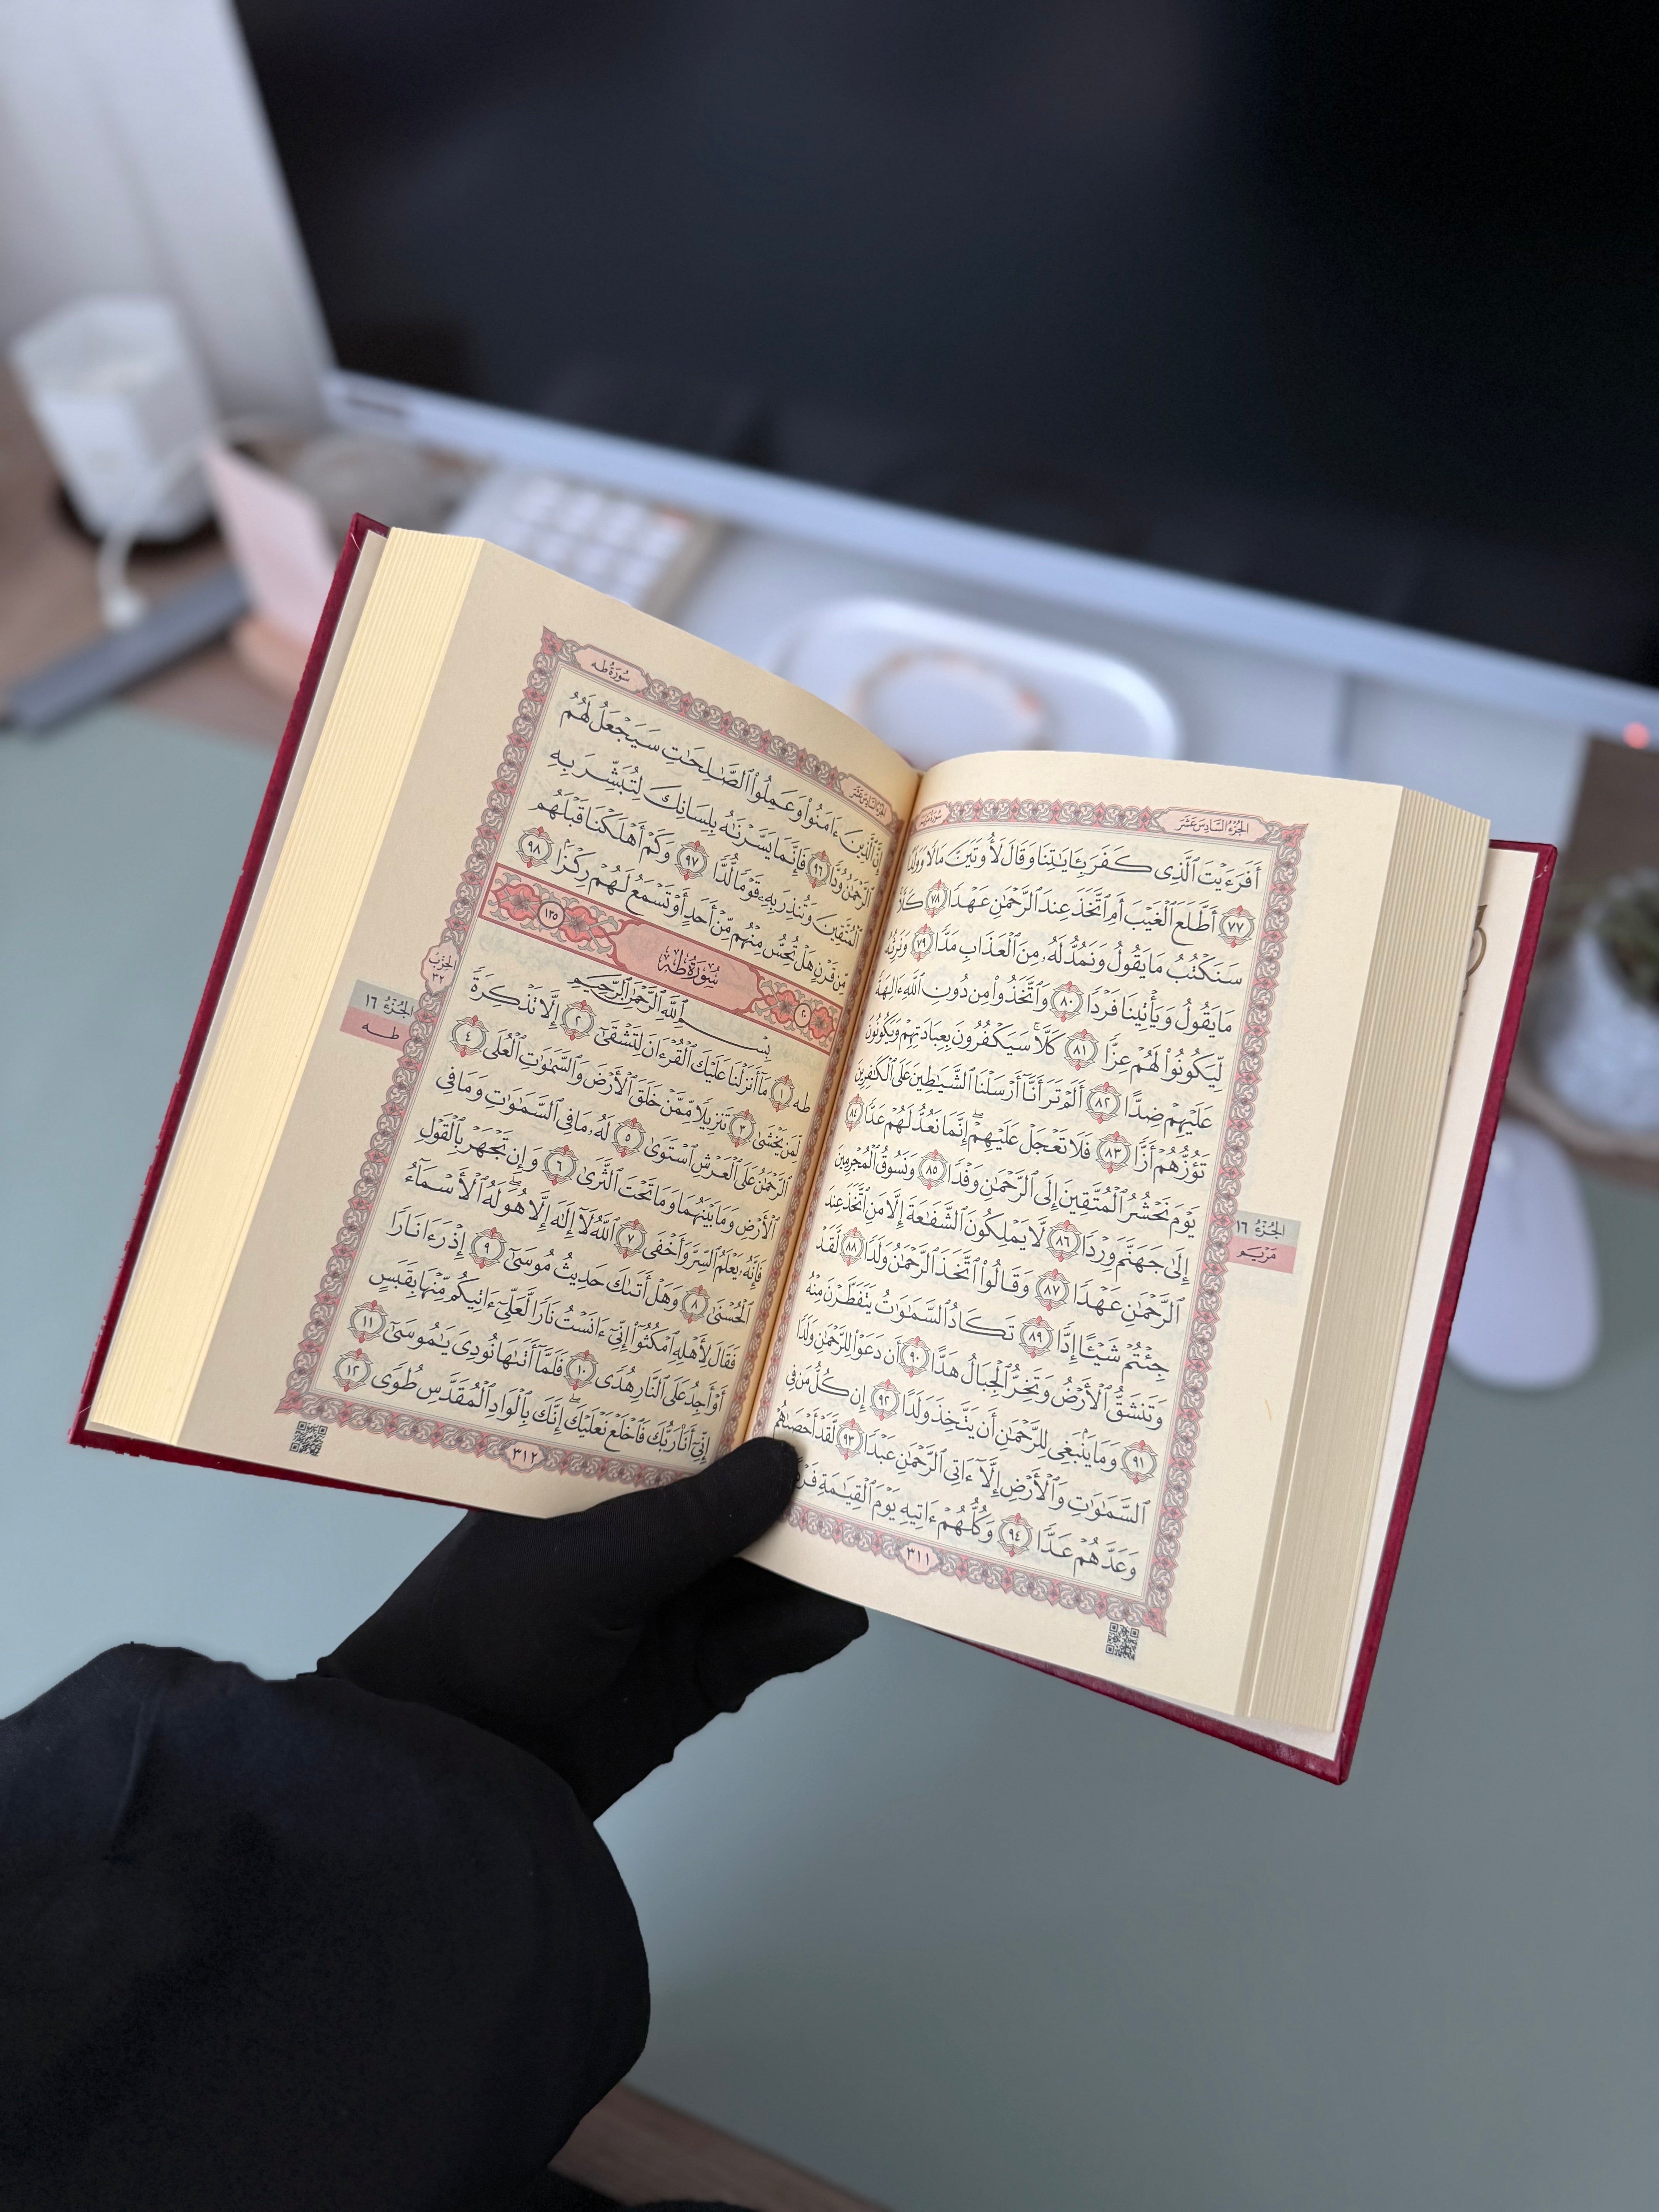 الجزء السادس عشر
أَفَرَءَيْتَ ٱلَّذِى كَفَرَ بِـَٔايَـٰتِنَا وَقَالَ لَأُوتَيَنَّ مَالًا وَوَلَدًا
٧٧ أَطَّلَعَ ٱلْغَيْبَ أَمِ ٱتَّخَذَ عِندَ ٱلرَّحْمَـٰنِ عَهْدًا ٧٨ كَلَّا
سَنَكْتُبُ مَا يَقُولُ وَنَمُدُّ لَهُۥ مِنَ ٱلْعَذَابِ مَدًّا ٧٩ وَنَرِثُهُۥ
مَا يَقُولُ وَيَأْتِينَا فَرْدًا ٨٠ وَٱتَّخَذُوا۟ مِن دُونِ ٱللَّهِ ءَالِهَةً
لِّيَكُونُوا۟ لَهُمْ عِزًّا ٨١ كَلَّا ۚ سَيَكْفُرُونَ بِعِبَادَتِهِمْ وَيَكُونُونَ
عَلَيْهِمْ ضِدًّا ٨٢ أَلَمْ تَرَ أَنَّآ أَرْسَلْنَا ٱلشَّيَـٰطِينَ عَلَى ٱلْكَـٰفِرِينَ
تَؤُزُّهُمْ أَزًّا ٨٣ فَلَا تَعْجَلْ عَلَيْهِمْ ۖ إِنَّمَا نَعُدُّ لَهُمْ عَدًّا ٨٤
يَوْمَ نَحْشُرُ ٱلْمُتَّقِينَ إِلَى ٱلرَّحْمَـٰنِ وَفْدًا ٨٥ وَنَسُوقُ ٱلْمُجْرِمِينَ
إِلَىٰ جَهَنَّمَ وِرْدًا ٨٦ لَّا يَمْلِكُونَ ٱلشَّفَـٰعَةَ إِلَّا مَنِ ٱتَّخَذَ عِندَ
ٱلرَّحْمَـٰنِ عَهْدًا ٨٧ وَقَالُوا۟ ٱتَّخَذَ ٱلرَّحْمَـٰنُ وَلَدًا ٨٨ لَّقَدْ
جِئْتُمْ شَيْـًٔا إِدًّا ٨٩ تَكَادُ ٱلسَّمَـٰوَٰتُ يَتَفَطَّرْنَ مِنْهُ
وَتَنشَقُّ ٱلْأَرْضُ وَتَخِرُّ ٱلْجِبَالُ هَدًّا ٩٠ أَن دَعَوْا۟ لِلرَّحْمَـٰنِ وَلَدًا
٩١ وَمَا يَنۢبَغِى لِلرَّحْمَـٰنِ أَن يَتَّخِذَ وَلَدًا ٩٢ إِن كُلُّ مَن فِى
ٱلسَّمَـٰوَٰتِ وَٱلْأَرْضِ إِلَّآ ءَاتِى ٱلرَّحْمَـٰنِ عَبْدًا ٩٣ لَّقَدْ أَحْصَىٰهُمْ
وَعَدَّهُمْ عَدًّا ٩٤ وَكُلُّهُمْ ءَاتِيهِ يَوْمَ ٱلْقِيَـٰمَةِ
الجزء ١٦
مريم
٣١١
سورة طه
الجزء السادس عشر
إِنَّ ٱلَّذِينَ ءَامَنُوا۟ وَعَمِلُوا۟ ٱلصَّـٰلِحَـٰتِ سَيَجْعَلُ لَهُمُ
ٱلرَّحْمَـٰنُ وُدًّا ٩٦ فَإِنَّمَا يَسَّرْنَـٰهُ بِلِسَانِكَ لِتُبَشِّرَ بِهِ
ٱلْمُتَّقِينَ وَتُنذِرَ بِهِۦ قَوْمًا لُّدًّا ٩٧ وَكَمْ أَهْلَكْنَا قَبْلَهُم
مِّن قَرْنٍ هَلْ تُحِسُّ مِنْهُم مِّنْ أَحَدٍ أَوْ تَسْمَعُ لَهُمْ رِكْزًۢا ٩٨
٢٠ سُورَةُ طه ١٣٥
بِسْمِ ٱللَّهِ ٱلرَّحْمَـٰنِ ٱلرَّحِيمِ
طه ١ مَآ أَنزَلْنَا عَلَيْكَ ٱلْقُرْءَانَ لِتَشْقَىٰٓ ٢ إِلَّا تَذْكِرَةً
لِّمَن يَخْشَىٰ ٣ تَنزِيلًا مِّمَّنْ خَلَقَ ٱلْأَرْضَ وَٱلسَّمَـٰوَٰتِ ٱلْعُلَى ٤
ٱلرَّحْمَـٰنُ عَلَى ٱلْعَرْشِ ٱسْتَوَىٰ ٥ لَهُۥ مَا فِى ٱلسَّمَـٰوَٰتِ وَمَا فِى
ٱلْأَرْضِ وَمَا بَيْنَهُمَا وَمَا تَحْتَ ٱلثَّرَىٰ ٦ وَإِن تَجْهَرْ بِٱلْقَوْلِ
فَإِنَّهُۥ يَعْلَمُ ٱلسِّرَّ وَأَخْفَى ٧ ٱللَّهُ لَآ إِلَـٰهَ إِلَّا هُوَ ۖ لَهُ ٱلْأَسْمَآءُ
ٱلْحُسْنَىٰ ٨ وَهَلْ أَتَىٰكَ حَدِيثُ مُوسَىٰٓ ٩ إِذْ رَءَا نَارًا
فَقَالَ لِأَهْلِهِ ٱمْكُثُوٓا۟ إِنِّىٓ ءَانَسْتُ نَارًا لَّعَلِّىٓ ءَاتِيكُم مِّنْهَا بِقَبَسٍ
أَوْ أَجِدُ عَلَى ٱلنَّارِ هُدًى ١٠ فَلَمَّآ أَتَىٰهَا نُودِىَ يَـٰمُوسَىٰٓ ١١
إِنِّىٓ أَنَا۠ رَبُّكَ فَٱخْلَعْ نَعْلَيْكَ ۖ إِنَّكَ بِٱلْوَادِ ٱلْمُقَدَّسِ طُوًى ١٢
الحزب
٣٢
الجزء ١٦
طه
٣١٢